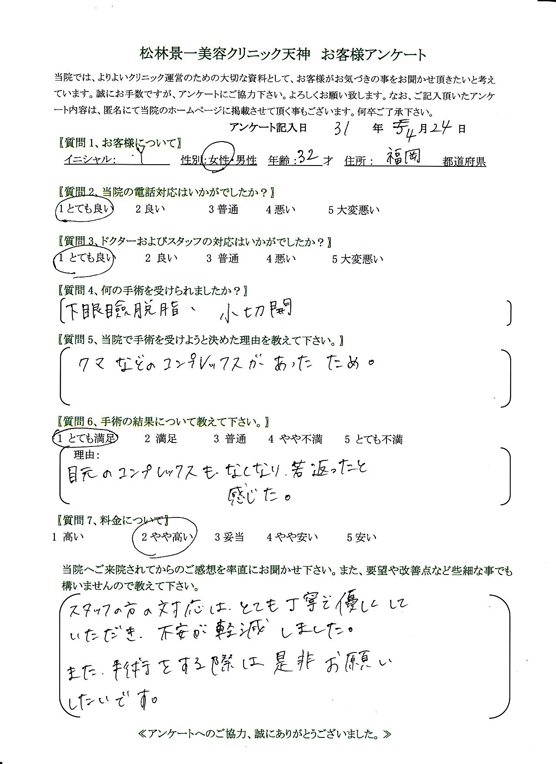 松林景一美容クリニック天神　お客様アンケート
当院では、よりよいクリニック運営のための大切な資料として、お客様がお気づきの事をお聞かせ頂きたいと考え
ています。誠にお手数ですが、アンケートにご協力下さい。よろしくお願い致します。なお、ご記入頂いたアンケ
ート内容は、匿名にて当院のホームページに掲載させて頂く事もございます。何卒ご了承下さい。
アンケート記入日　31　年　4月24日
〖質問1、お客様について〗
イニシャル：　Y　性別：女性・男性　年齢：32才　住所：　福岡　都道府県
〖質問2、当院の電話対応はいかがでしたか？〗
1とても良い　2良い　3普通　4悪い　5大変悪い
〖質問3、ドクターおよびスタッフの対応はいかがでしたか？〗
1とても良い　2良い　3普通　4悪い　5大変悪い
〖質問4、何の手術を受けられましたか？〗
下眼瞼脱脂、小切開
〖質問5、当院で手術を受けようと決めた理由を教えて下さい。〗
クマなどのコンプレックスがあったため。
〖質問6、手術の結果について教えて下さい。〗
1とても満足　2満足　3普通　4やや不満　5とても不満
理由：
目元のコンプレックスもなくなり、若返ったと
感じた。
〖質問7、料金について〗
1高い　2やや高い　3妥当　4やや安い　5安い
当院へご来院されてからのご感想を率直にお聞かせ下さい。また、要望や改善点など些細な事でも
構いませんので教えて下さい。
スタッフの方の対応は、とても丁寧で優しくして
いただき、不安が軽減しました。
また、手術をする際は是非お願い
したいです。
≪アンケートへのご協力、誠にありがとうございました。≫